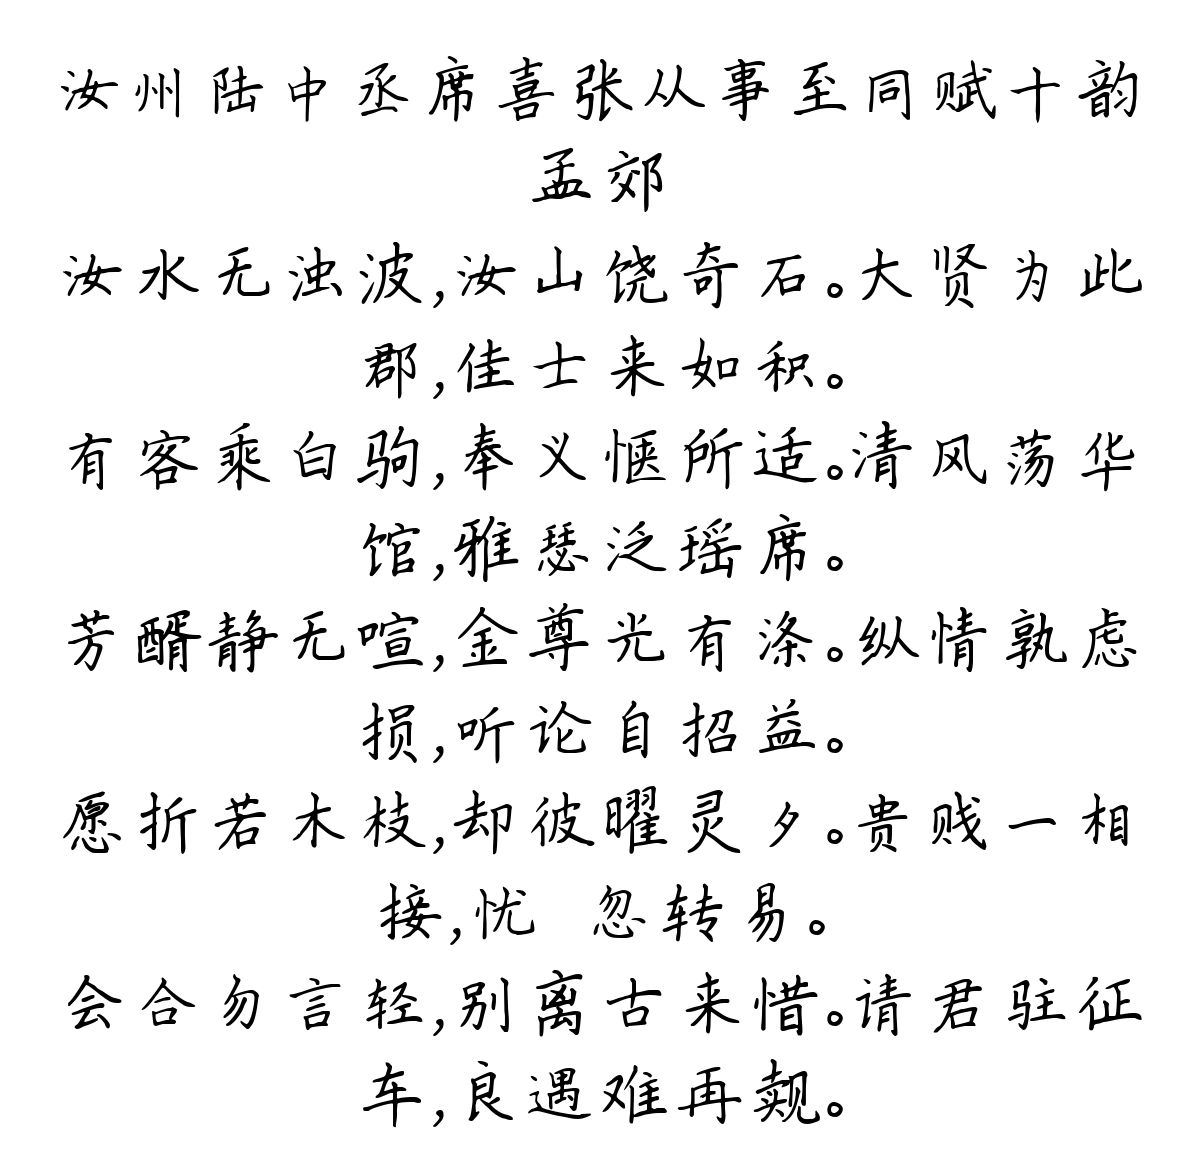 汝州陆中丞席喜张从事至同赋十韵
孟郊
汝水无浊波,汝山饶奇石。大贤为此
郡,佳士来如积。
有客乘白驹,奉义惬所适。清风荡华
馆,雅瑟泛瑶席。
芳醑静无喧,金尊光有涤。纵情孰虑
损,听论自招益。
愿折若木枝,却彼曜灵夕。贵贱一相
接,忧 忽转易。
会合勿言轻,别离古来惜。请君驻征
车,良遇难再觌。